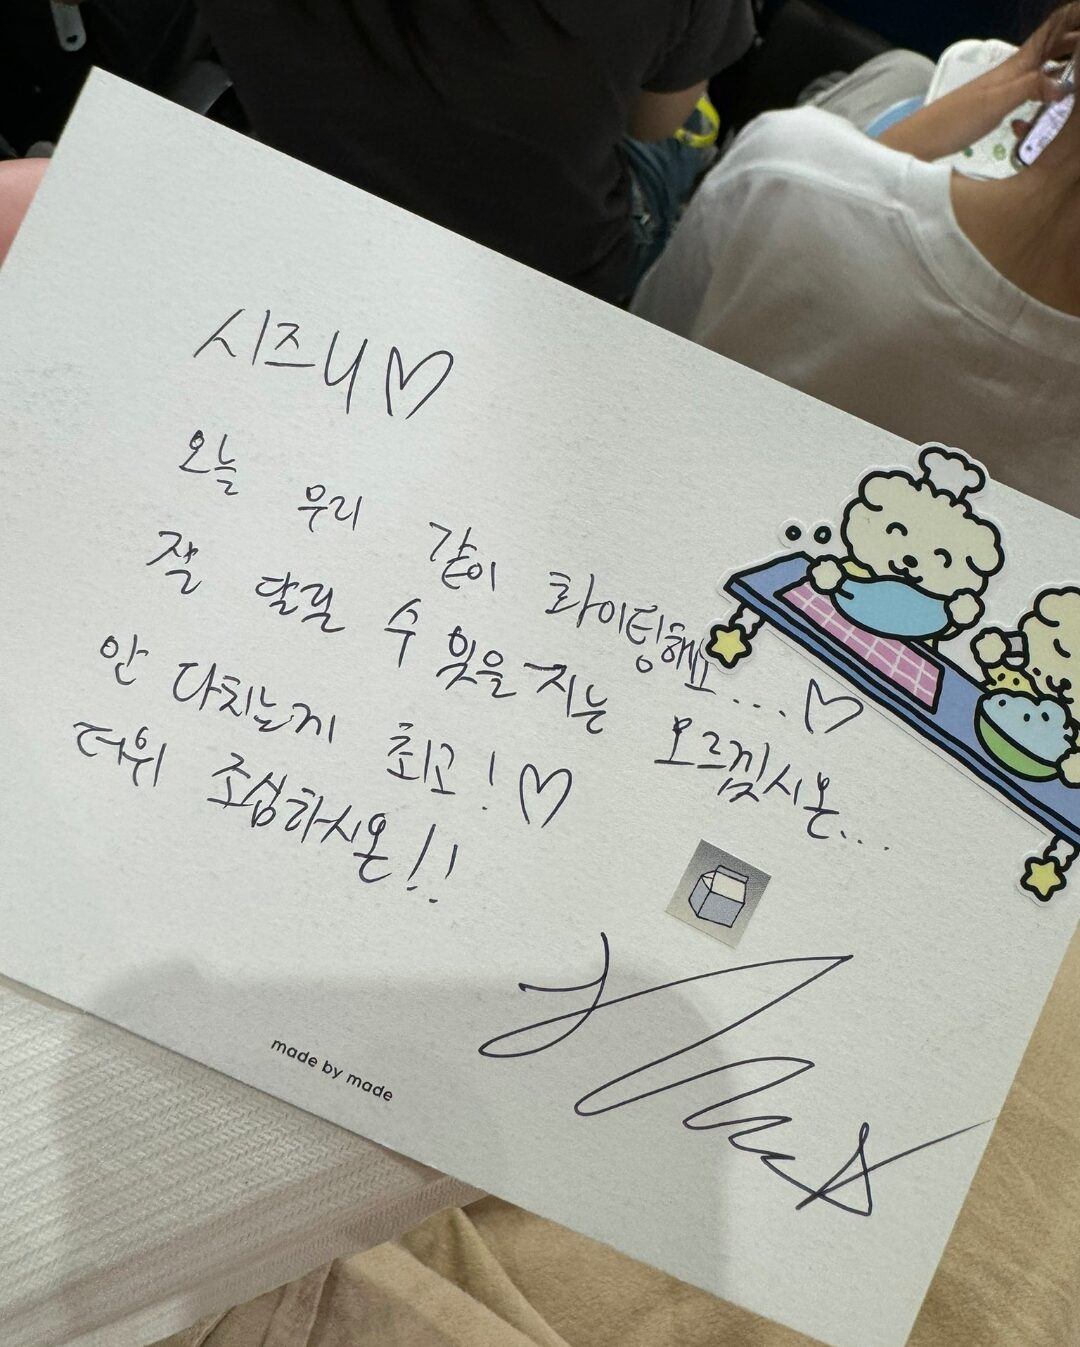 시즈니♡
오늘 우리 같이 화이팅해요....♡
잘 달릴 수 있을지는 모르겠지만...
안 다치는게 최고!♡
더위 조심하시온!!
made by made